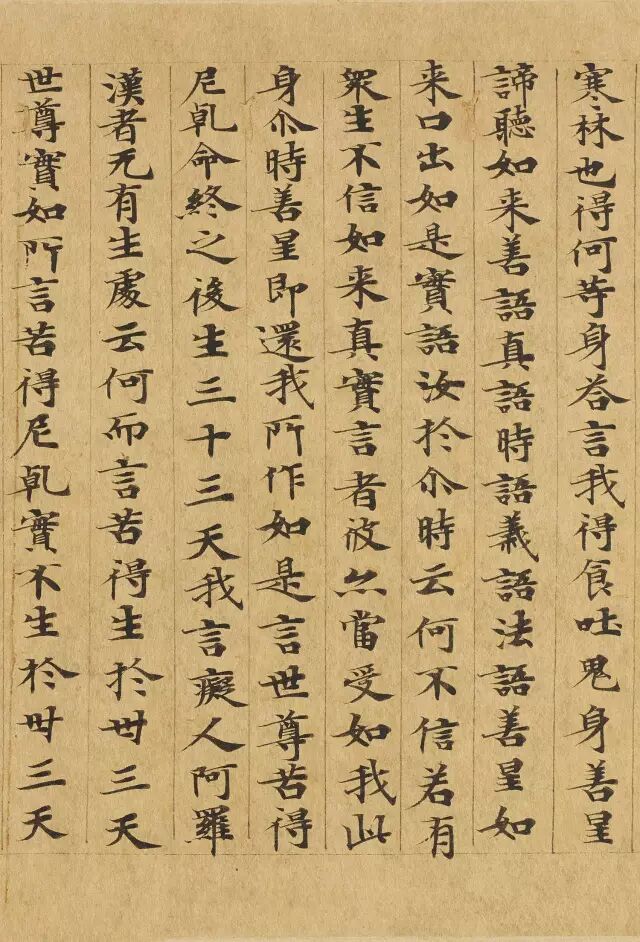 寒林也得何等身荅言我得食吐鬼身善星
諦聽如来善語真語時語義語法語善星如
来口出如是實語汝扵尒時云何不信若有
衆生不信如来真實言者彼亦當受如我此
身尒時善星即還我所作如是言世尊苦得
尼乹命終之後生三十三天我言癡人阿羅
漢者无有生處云何而言苦得生扵卅三天
世尊實如所言苦得尼乹實不生扵卅三天